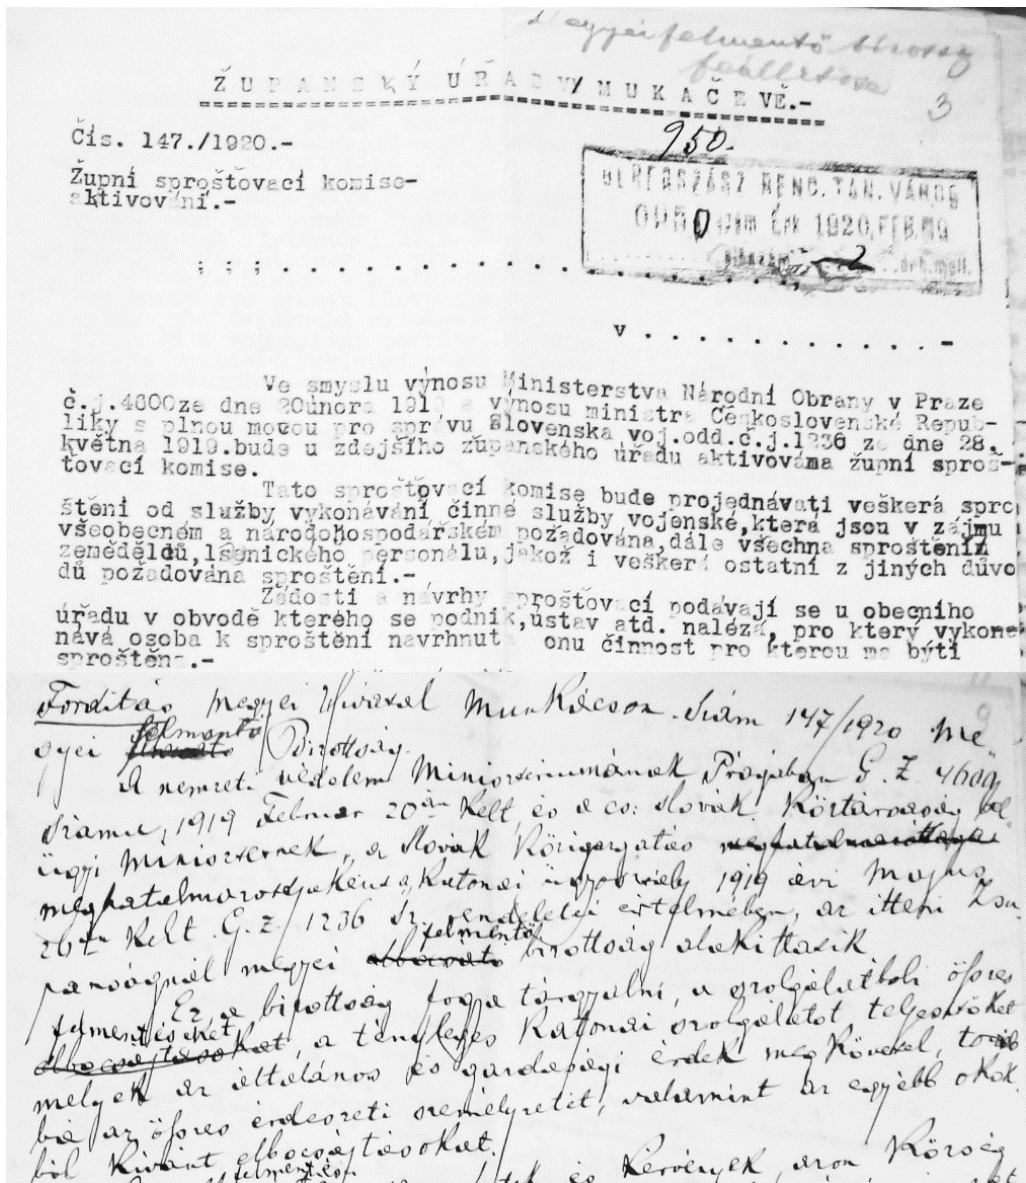 Megyei felmentő bizottság
felállítása
3
ŽUPANSKÝ ÚŘAD V MUKAČEVĚ.-
Čís. 147./1920.-
950.
Župní sprošťovací komise-
aktivování.-
BEREGSZÁSZ REND. TAN. VÁROS
0950 szám Érk 1920. FEB.
2 drb. mell.
; ; ; . . . . . . . . . . . . . . . . . . . .
v . . . . . . . . . . . . -
Ve smyslu výnosu Ministerstva Národní Obrany v Praze
č.j.4600ze dne 20února 1919 a výnosu ministra Československé Repub-
liky s plnou mocou pro správu Slovenska voj.odd.č.j.1236 ze dne 28.
května 1919.bude u zdejšího županského úřadu aktivováma župní sproš-
ťovací komise.
Tato sprošťovací komise bude projednávati veškerá spro
štěni od služby vykonávání činné služby vojenské,která jsou v zájmu
všeobecném a národohospodářském požadována,dále všechna sproštění
zeměděldů, personálu,jakož i veškerá ostatní z jiných důvo
dů požadována sproštění.-
Žádosti a návrhy sprošťovací podávají se u obecního
úřadu v obvodě kterého se podnik,ústav atd. nalézá, pro který vykone
nává osoba k sproštění navrhnutá onu činnost pro kterou ma býti
sproštěna.-
Fordítás Megyei Hivatal Munkácson. Szám 147/1920 Me-
gyei felmentő Bizottság.
A nemzeti védelem Miniszteriumának Prágában G. Z. 4600
számu, 1919 Februar 20án Kelt, és a cs: slovák Köztársaság
ügyi Miniszternek, a slovák Közigazgatás
meghatalmazottjaként a Katonai ügyosztály 1919 évi Majus
Kelt G. Z. 1236 sz. rendeletei értelmében, az itteni Zsu-
panságnál megyei felmentő bizottság alakíttatik
Ez a bizottság fogja tárgyalni, a szolgálatbóli összes
felmentéseket, a tényleges Katonai szolgálatot teljesítőket
melyek az általános és gazdasági érdek megkövetel, továb
bá az összes erdészeti személyzetét, valamint az egyébb okok-
ból Kívánt elbocsájtásokat.
felmentési
és Kérvények, azon Község